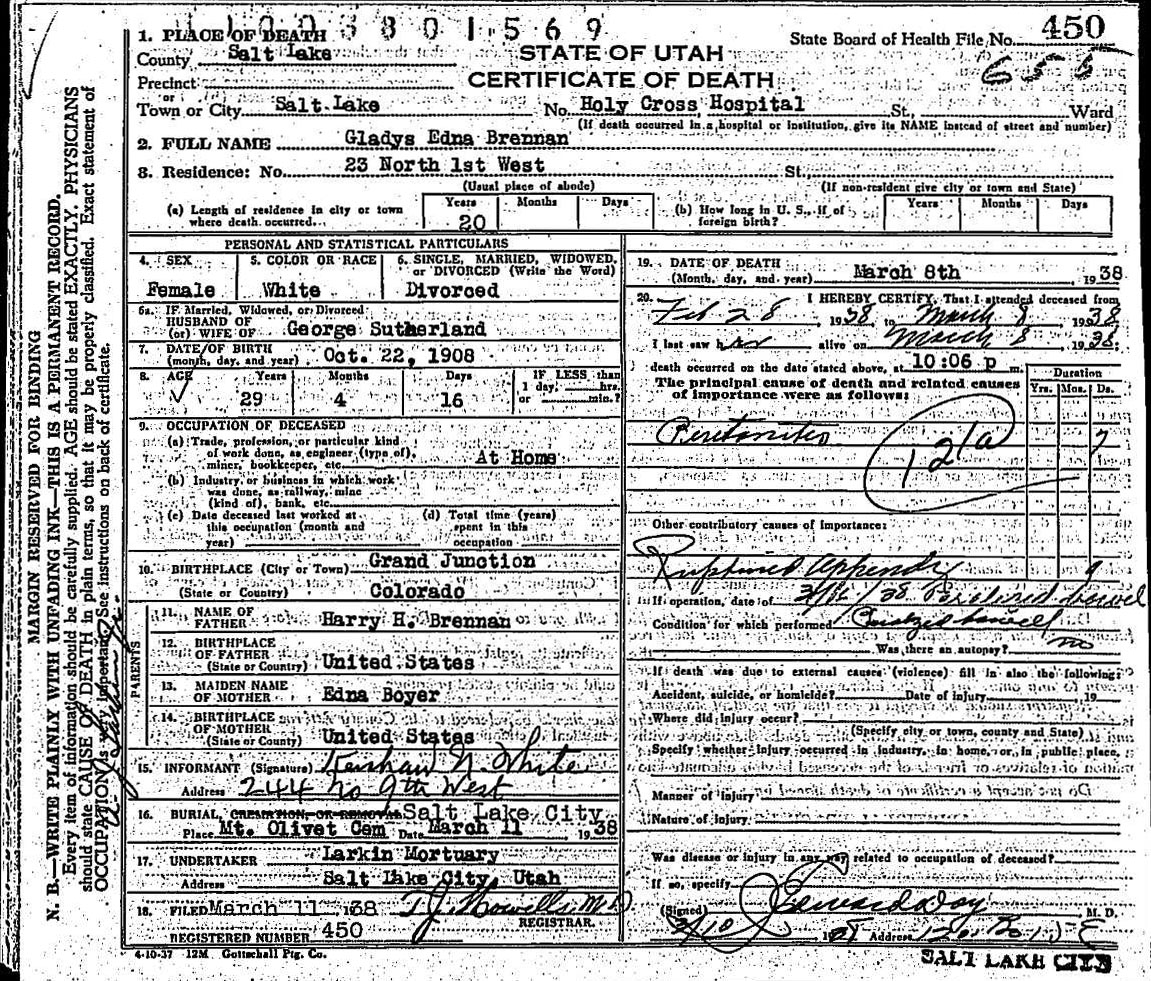 1003801569
1. PLACE OF DEATH
State Board of Health File No. 450
County Salt Lake
STATE OF UTAH
655
Precinct
CERTIFICATE OF DEATH
or
Town or City Salt Lake No. Holy Cross Hospital St., Ward
(If death occurred in a hospital or institution, give its NAME instead of street and number)
2. FULL NAME Gladys Edna Brennan
3. Residence: No. 23 North 1st West St.
(Usual place of abode) (If non-resident give city or town and State)
(a) Length of residence in city or town where death occurred. Years 20 Months Days
(b) How long in U. S., if of foreign birth? Years Months Days
PERSONAL AND STATISTICAL PARTICULARS
4. SEX Female
5. COLOR OR RACE White
6. SINGLE, MARRIED, WIDOWED, or DIVORCED (Write the Word) Divorced
6a. If Married, Widowed, or Divorced
HUSBAND OF
(or) WIFE OF George Sutherland
7. DATE OF BIRTH
(month, day, and year) Oct. 22, 1908
8. AGE Years 29 Months 4 Days 16
IF LESS than 1 day, hrs. or min.?
9. OCCUPATION OF DECEASED
(a) Trade, profession, or particular kind
of work done, as engineer (type of),
miner, bookkeeper, etc. At Home
(b) Industry or business in which work
was done, as railway, mine
(kind of), bank, etc.
(c) Date deceased last worked at this occupation (month and year)
(d) Total time (years) spent in this occupation
10. BIRTHPLACE (City or Town) Grand Junction
(State or Country) Colorado
PARENTS
11. NAME OF FATHER Harry H. Brennan
12. BIRTHPLACE OF FATHER (State or Country) United States
13. MAIDEN NAME OF MOTHER Edna Boyer
14. BIRTHPLACE OF MOTHER (State or Country) United States
15. INFORMANT (Signature) Kershaw N. White
Address 244 No 9th West
16. BURIAL, CREMATION, OR REMOVAL Salt Lake City
Place Mt. Olivet Cem Date March 11 1938
17. UNDERTAKER Larkin Mortuary
Address Salt Lake City, Utah
18. FILED March 11 1938 T J Howells M D
REGISTRAR.
REGISTERED NUMBER 450
4-10-37 12M Gottschall Ptg. Co.
19. DATE OF DEATH
(Month, day, and year) March 8th 1938
20. I HEREBY CERTIFY, That I attended deceased from
Feb 28 1938 to March 8 1938
I last saw her alive on March 8 1938;
death occurred on the date stated above, at 10:06 p m.
The principal cause of death and related causes
of importance were as follows:
Duration
Yrs. Mos. Ds.
Peritonitis 7
121a
Other contributory causes of importance:
Ruptured Appendix 9
If operation, date of 38 bowel
Condition for which performed bowel
Was there an autopsy? no
If death was due to external causes (violence) fill in also the following:
Accident, suicide, or homicide? Date of injury 19
Where did injury occur?
(Specify city or town, county and State)
Specify whether injury occurred in industry, in home, or in public place.
Manner of injury
Nature of injury
Was disease or injury in any way related to occupation of deceased?
If so, specify
(Signed) M. D.
3/10 19 Address
SALT LAKE CITY
MARGIN RESERVED FOR BINDING
N. B.—WRITE PLAINLY WITH UNFADING INK—THIS IS A PERMANENT RECORD.
Every item of information should be carefully supplied. AGE should be stated EXACTLY. PHYSICIANS
should state CAUSE OF DEATH in plain terms, so that it may be properly classified. Exact statement of
OCCUPATION is very important. See instructions on back of certificate.